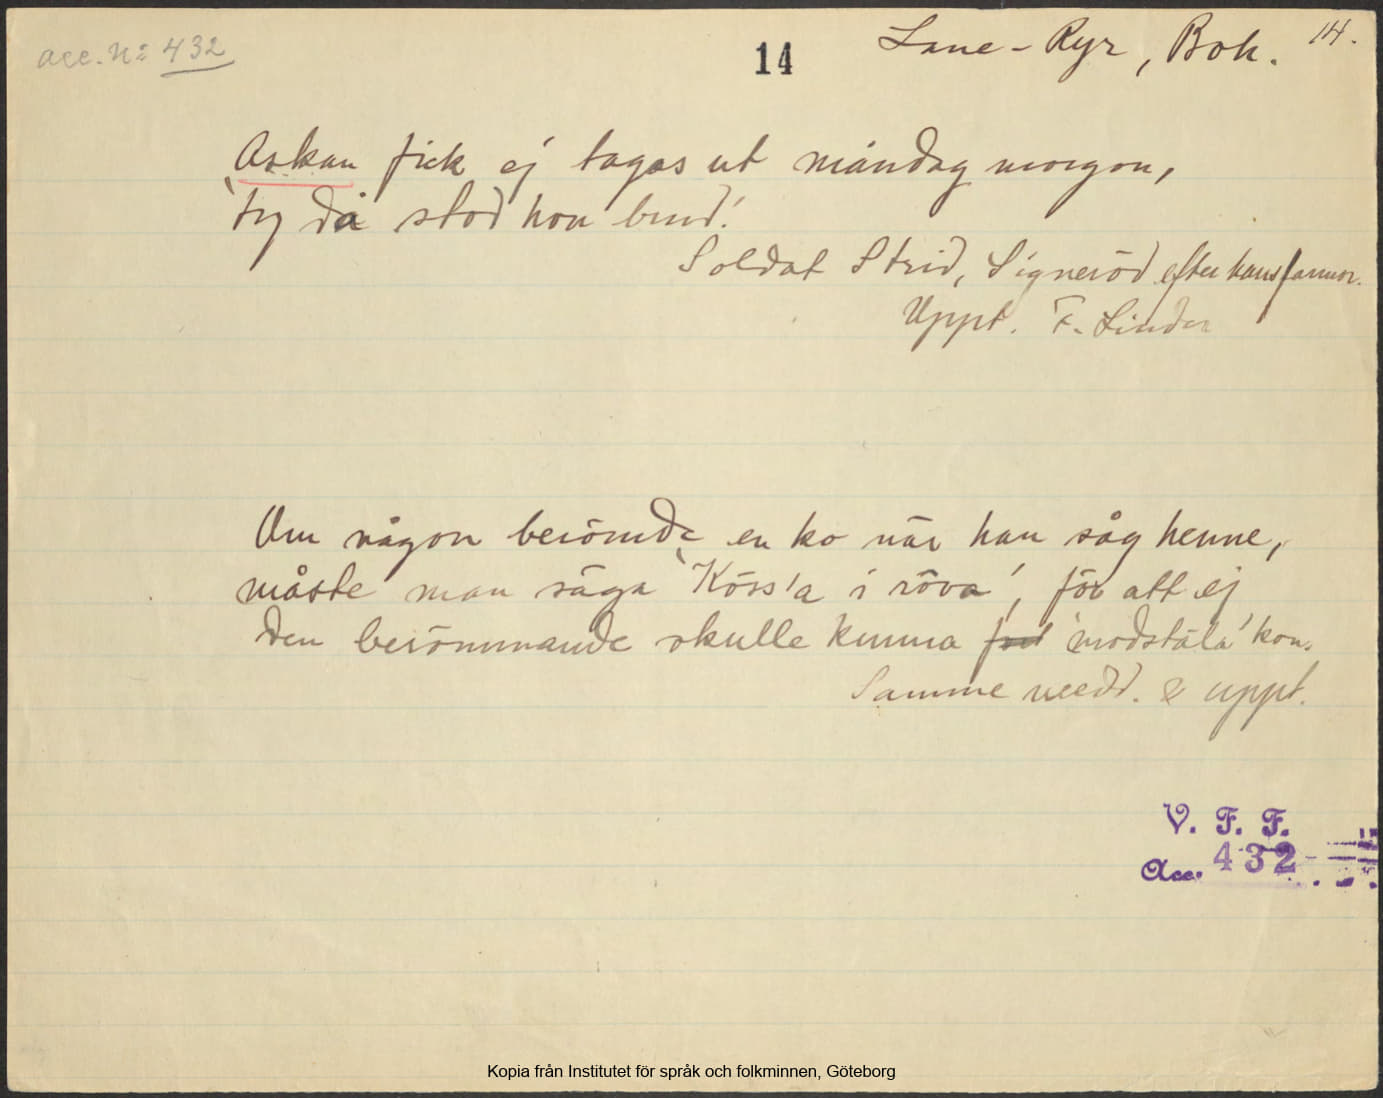 acc. No 432
14
Lane-Ryr, Boh. 14.
Askan fick ej tagas ut måndag morgon,
'ty då stod hon brud!'
Soldat Strid, Signeröd efter hans farmor.
Uppt. F. Linder
Om någon berömde en ko när han såg henne,
måste man säga 'Köss'a i röva', för att ej
den berömmande skulle kunna 'modstäla' kon.
Samme medd. & uppt.
V. F. F.
Acc. 432
Kopia från Institutet för språk och folkminnen, Göteborg